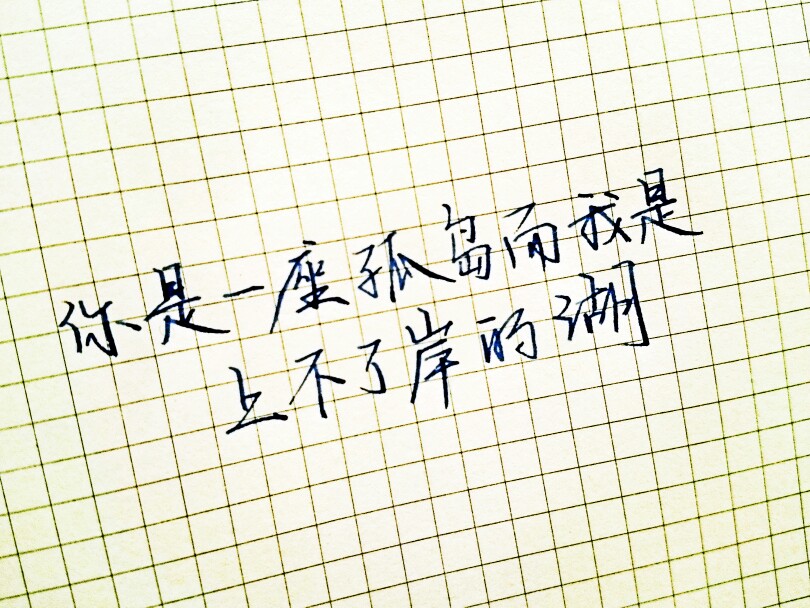 你是一座孤岛而我是
上不了岸的湖